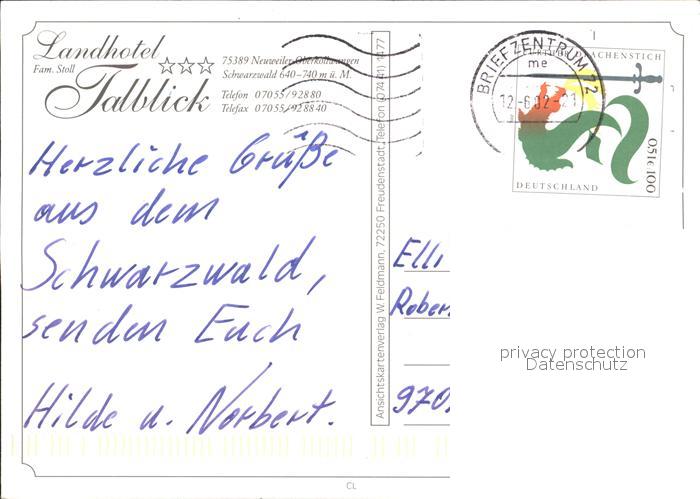 Landhotel
Fam. Stoll
Talblick
75389 Neuweiler-Oberkollwangen
Schwarzwald 640–740 m ü. M.
Telefon 07055/92880
Telefax 07055/928840
Herzliche Grüße
aus dem
Schwarzwald,
senden Euch
Hilde u. Norbert.
Ansichtskartenverlag W. Feldmann, 72250 Freudenstadt, Telefon
BRIEFZENTRUM 72
me
12-6.02-21
DRACHENSTICH
0,51€ 100
DEUTSCHLAND
Elli
Rober
970
privacy protection
Datenschutz
CL